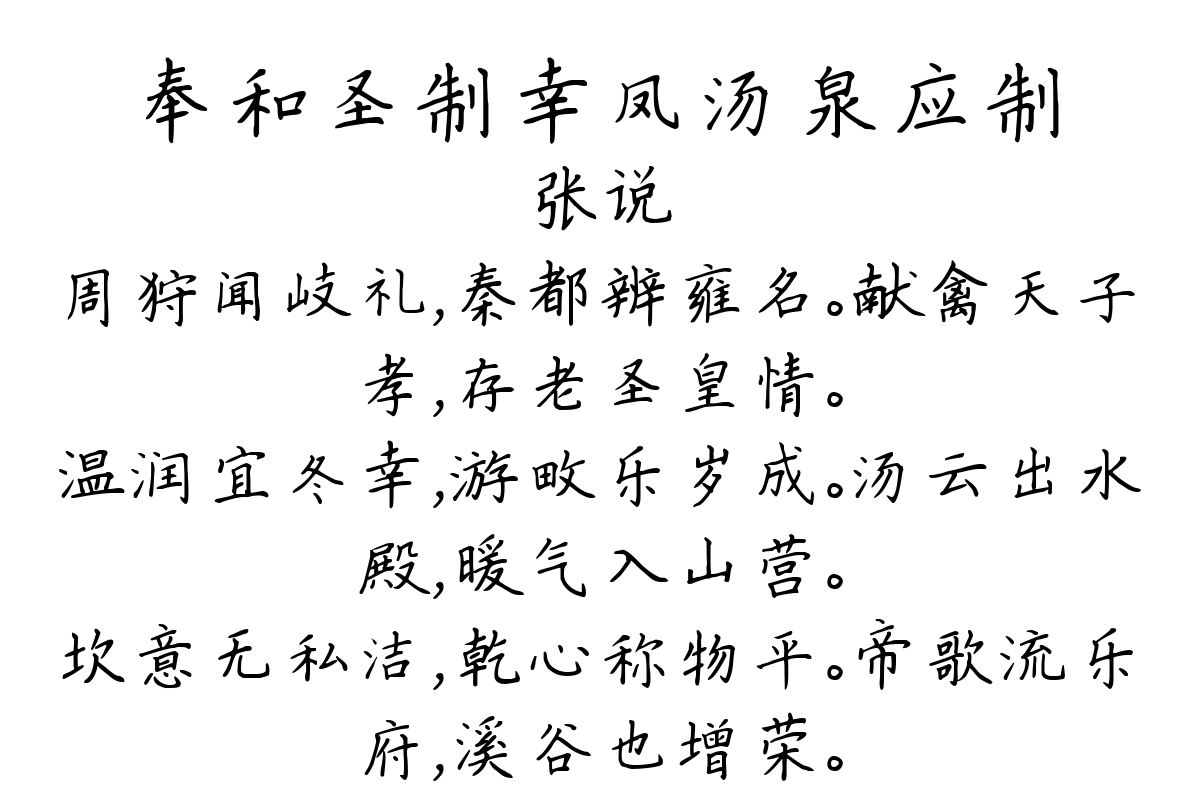 奉和圣制幸凤汤泉应制
张说
周狩闻岐礼,秦都辨雍名。献禽天子
孝,存老圣皇情。
温润宜冬幸,游畋乐岁成。汤云出水
殿,暖气入山营。
坎意无私洁,乾心称物平。帝歌流乐
府,溪谷也增荣。